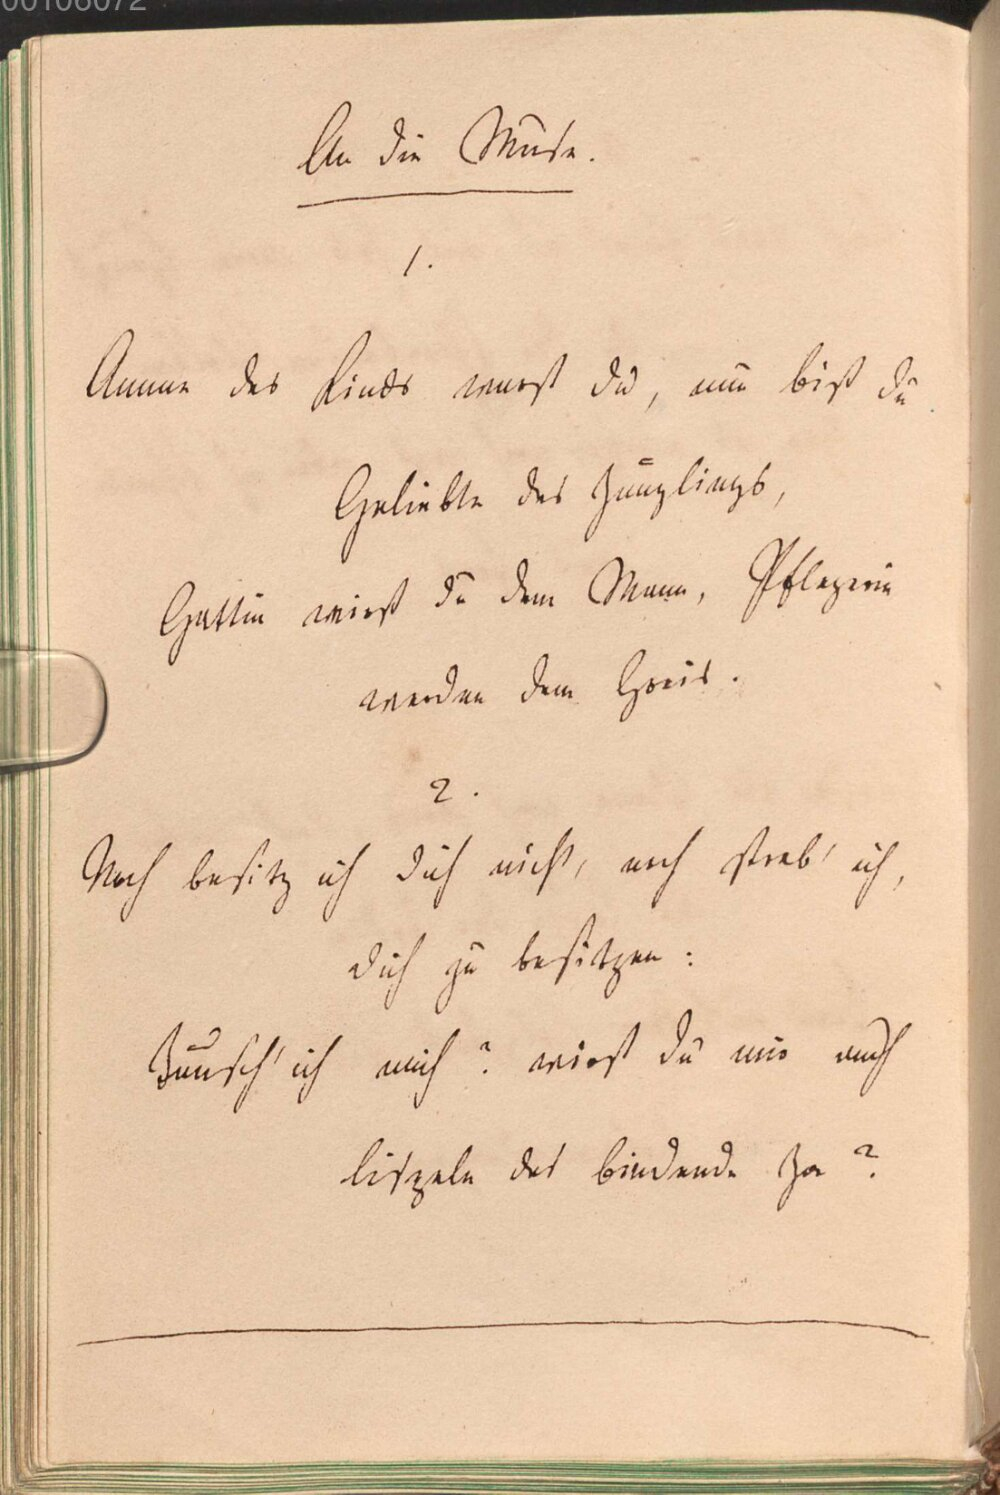 00106072
An die Muse.
1.
Amme des Kinds warst du, nun bist du
Geliebte des Jünglings,
Gattin wirst du dem Mann, Pflegerin
werden dem Greis.
2.
Noch besitz ich dich nicht, noch streb' ich,
dich zu besitzen:
Täusch' ich mich? wirst du mir auch
lispeln das bindende Ja?